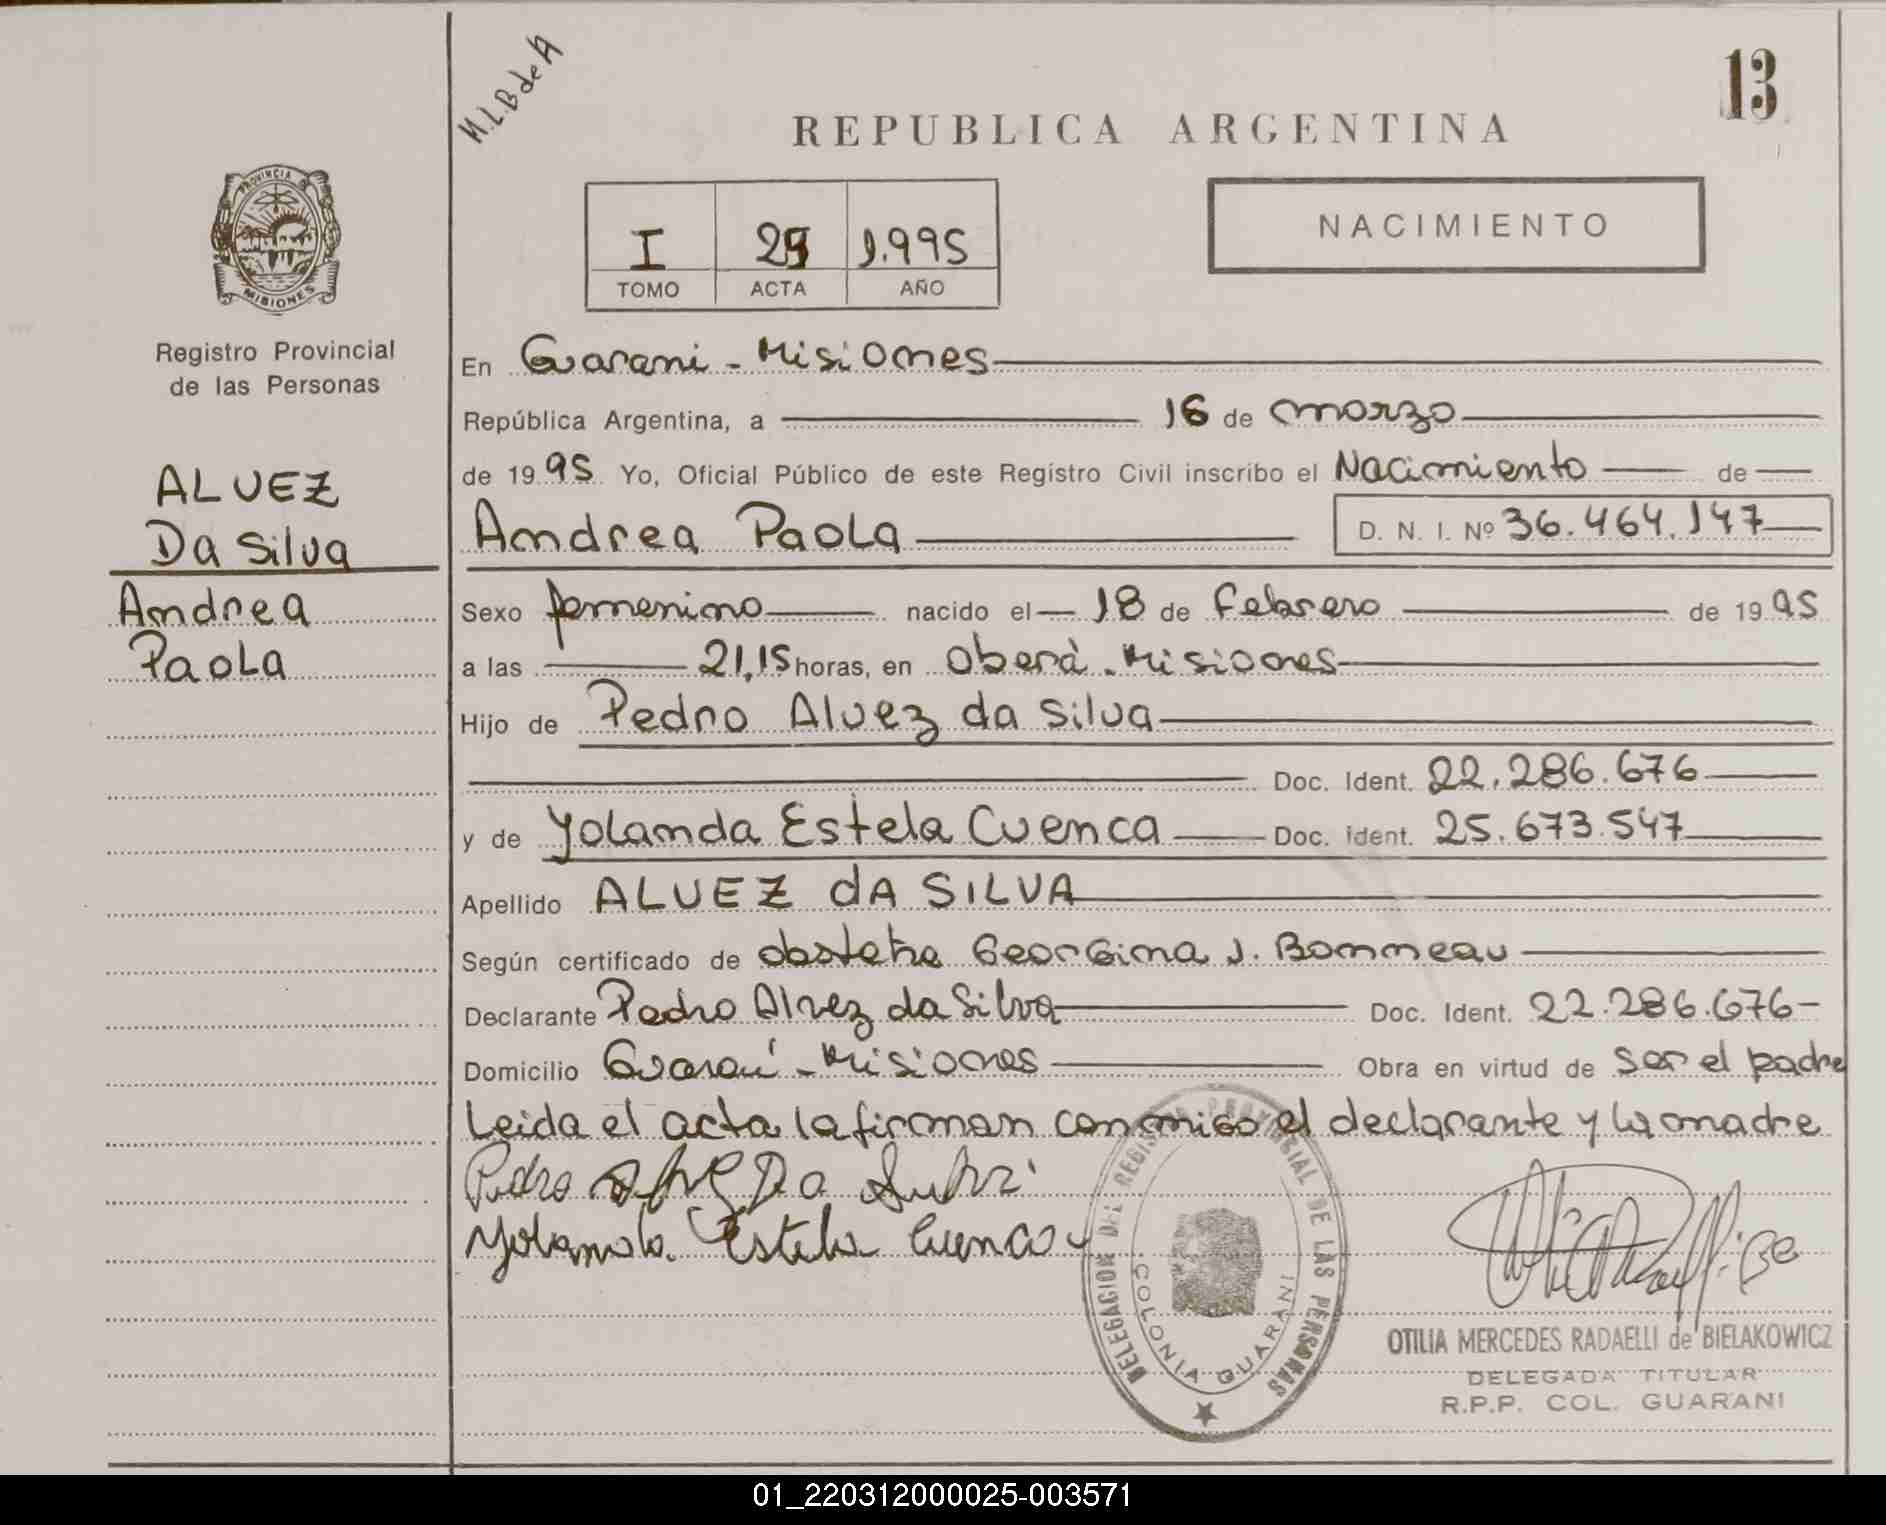 M.L.B de A
13
REPUBLICA ARGENTINA
PROVINCIA
MISIONES
NACIMIENTO
I 1.995
TOMO ACTA AÑO
Registro Provincial
de las Personas
ALVEZ
Da Silva
Andrea
Paola
En Guarani - Misiones
República Argentina, a 16 de marzo
de 1995 Yo, Oficial Público de este Registro Civil inscribo el Nacimiento de
Andrea Paola D. N. I. Nº 36.464.147
Sexo femenino nacido el 18 de Febrero de 1995
a las 21,15 horas, en Oberà - Misiones
Hijo de Pedro Alvez da Silva
Doc. Ident. 22.286.676
y de Yolanda Estela Cuenca Doc. Ident. 25.673.547
Apellido ALVEZ dA SILVA
Según certificado de obstetra Georgina J. Bonneau
Declarante Pedro Alvez da Silva Doc. Ident. 22.286.676
Domicilio Guaraní - Misiones Obra en virtud de ser el padre
Leida el acta la firman conmigo el declarante y la madre
Pedro Alvez Da Silva
Yolanda Estela Cuenca
DELEGACION DEL REGISTRO PROVINCIAL DE LAS PERSONAS
COLONIA GUARANI
OTILIA MERCEDES RADAELLI de BIELAKOWICZ
DELEGADA TITULAR
R.P.P. COL. GUARANI
01_220312000025-003571